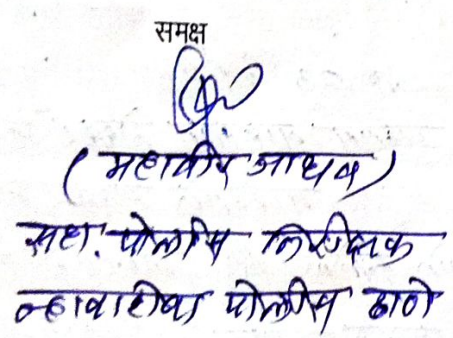 समक्ष
(महावीर जाधव)
सहा. पोलीस निरीक्षक
न्हावाशेवा पोलीस ठाणे